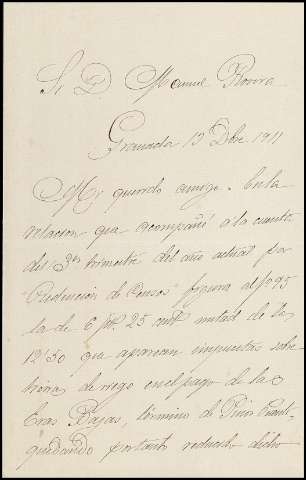 Sr D. Manuel Rovira
Granada 19 Dbre 1911
Mi querido amigo: En la
relacion que acompañé a la cuenta
del 3er trimestre del año actual por
"Redencion de Censos" figura al fº 95
la de 6 pts. 25 cent mitad de la
12'50 que aparecen impuestas sobre
hora de riego en el pago de las
Eras Bajas, término de Pinos Puente
quedando por tanto reducido dicho